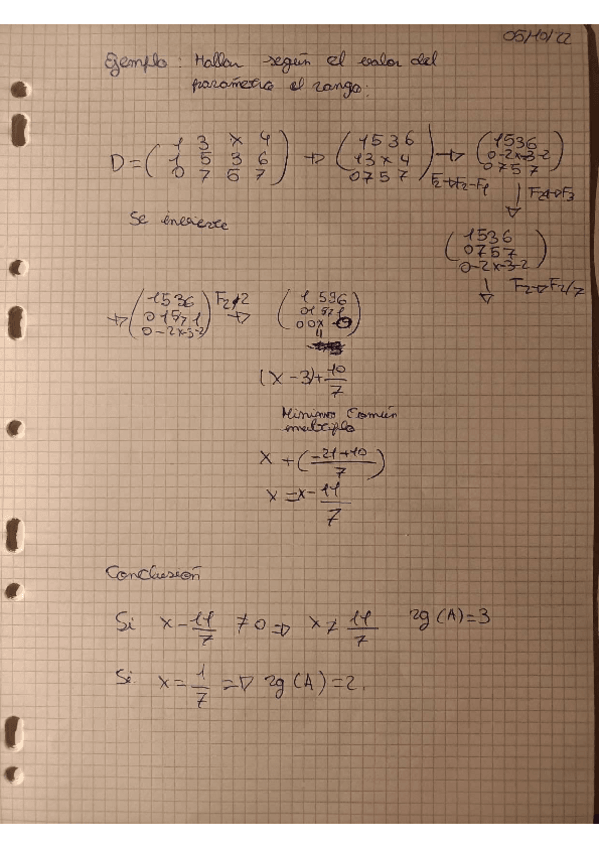 05/10/22
Ejemplo: Hallar según el valor del
parámetro el rango:
D = ( 1 3 x 4 ) → ( 1 5 3 6 ) → ( 1 5 3 6 )
1 5 3 6 1 3 x 4 0 -2 x-3 -2
0 7 5 7 0 7 5 7 F2→F2-F1 0 7 5 7
F2↔F3
Se invierte
( 1 5 3 6 )
0 7 5 7
0 -2 x-3 -2
F2→F2/7
→ ( 1 5 3 6 ) → ( 1 5 3 6 )
0 -2 x-3 -2
(x - 3) + 10/7
Mínimo Común
multiplo
x + ( -21+10 / 7 )
x = x - 11/7
Conclusión
Si x - 11/7 ≠ 0 ⇒ x ≠ 11/7 rg (A) = 3
Si x = 1/7 ⇒ rg (A) = 2.